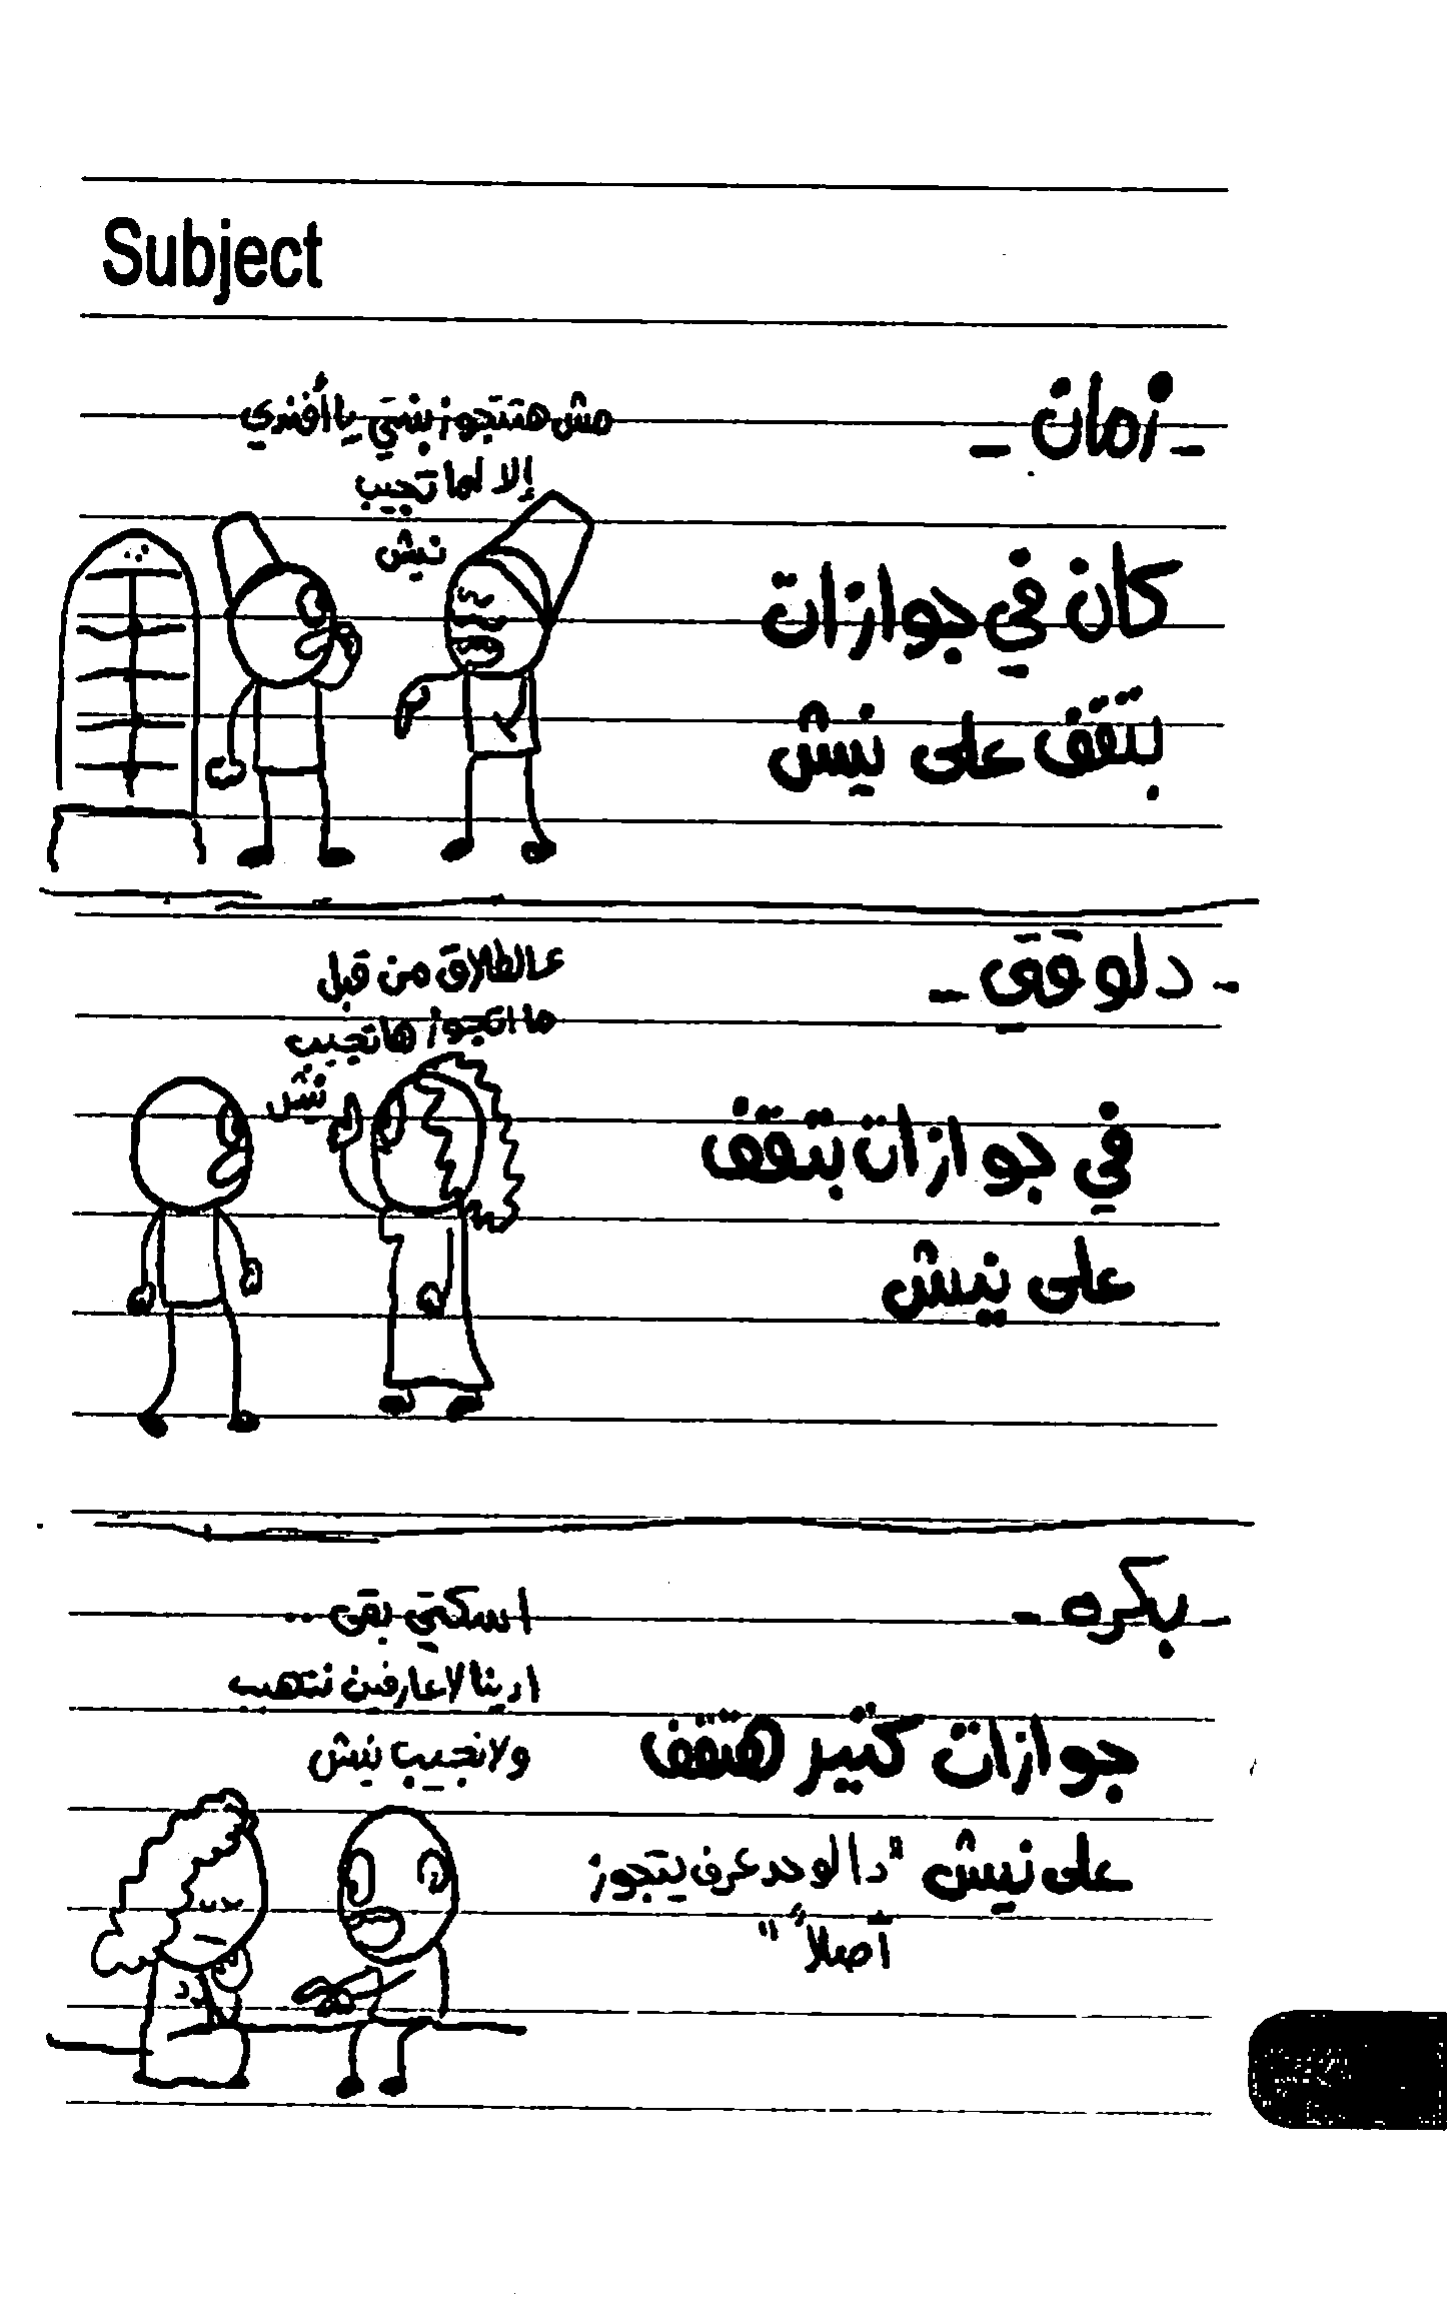 Subject
- زمان -
مش هتتجوز بنتي يا أفندي
إلا لما تجيب
نيش
كان في جوازات
بتقف على نيش
- دلوقتي -
عالطلاق من قبل
ما اتجوز هاتجيب
نيش
في جوازات بتقف
على نيش
- بكره -
اسكتي بقى ..
ادينا لا عارفين نتهبب
ولا نجيب نيش
جوازات كتير هتقف
على نيش "دا لو حد عرف يتجوز
أصلاً"